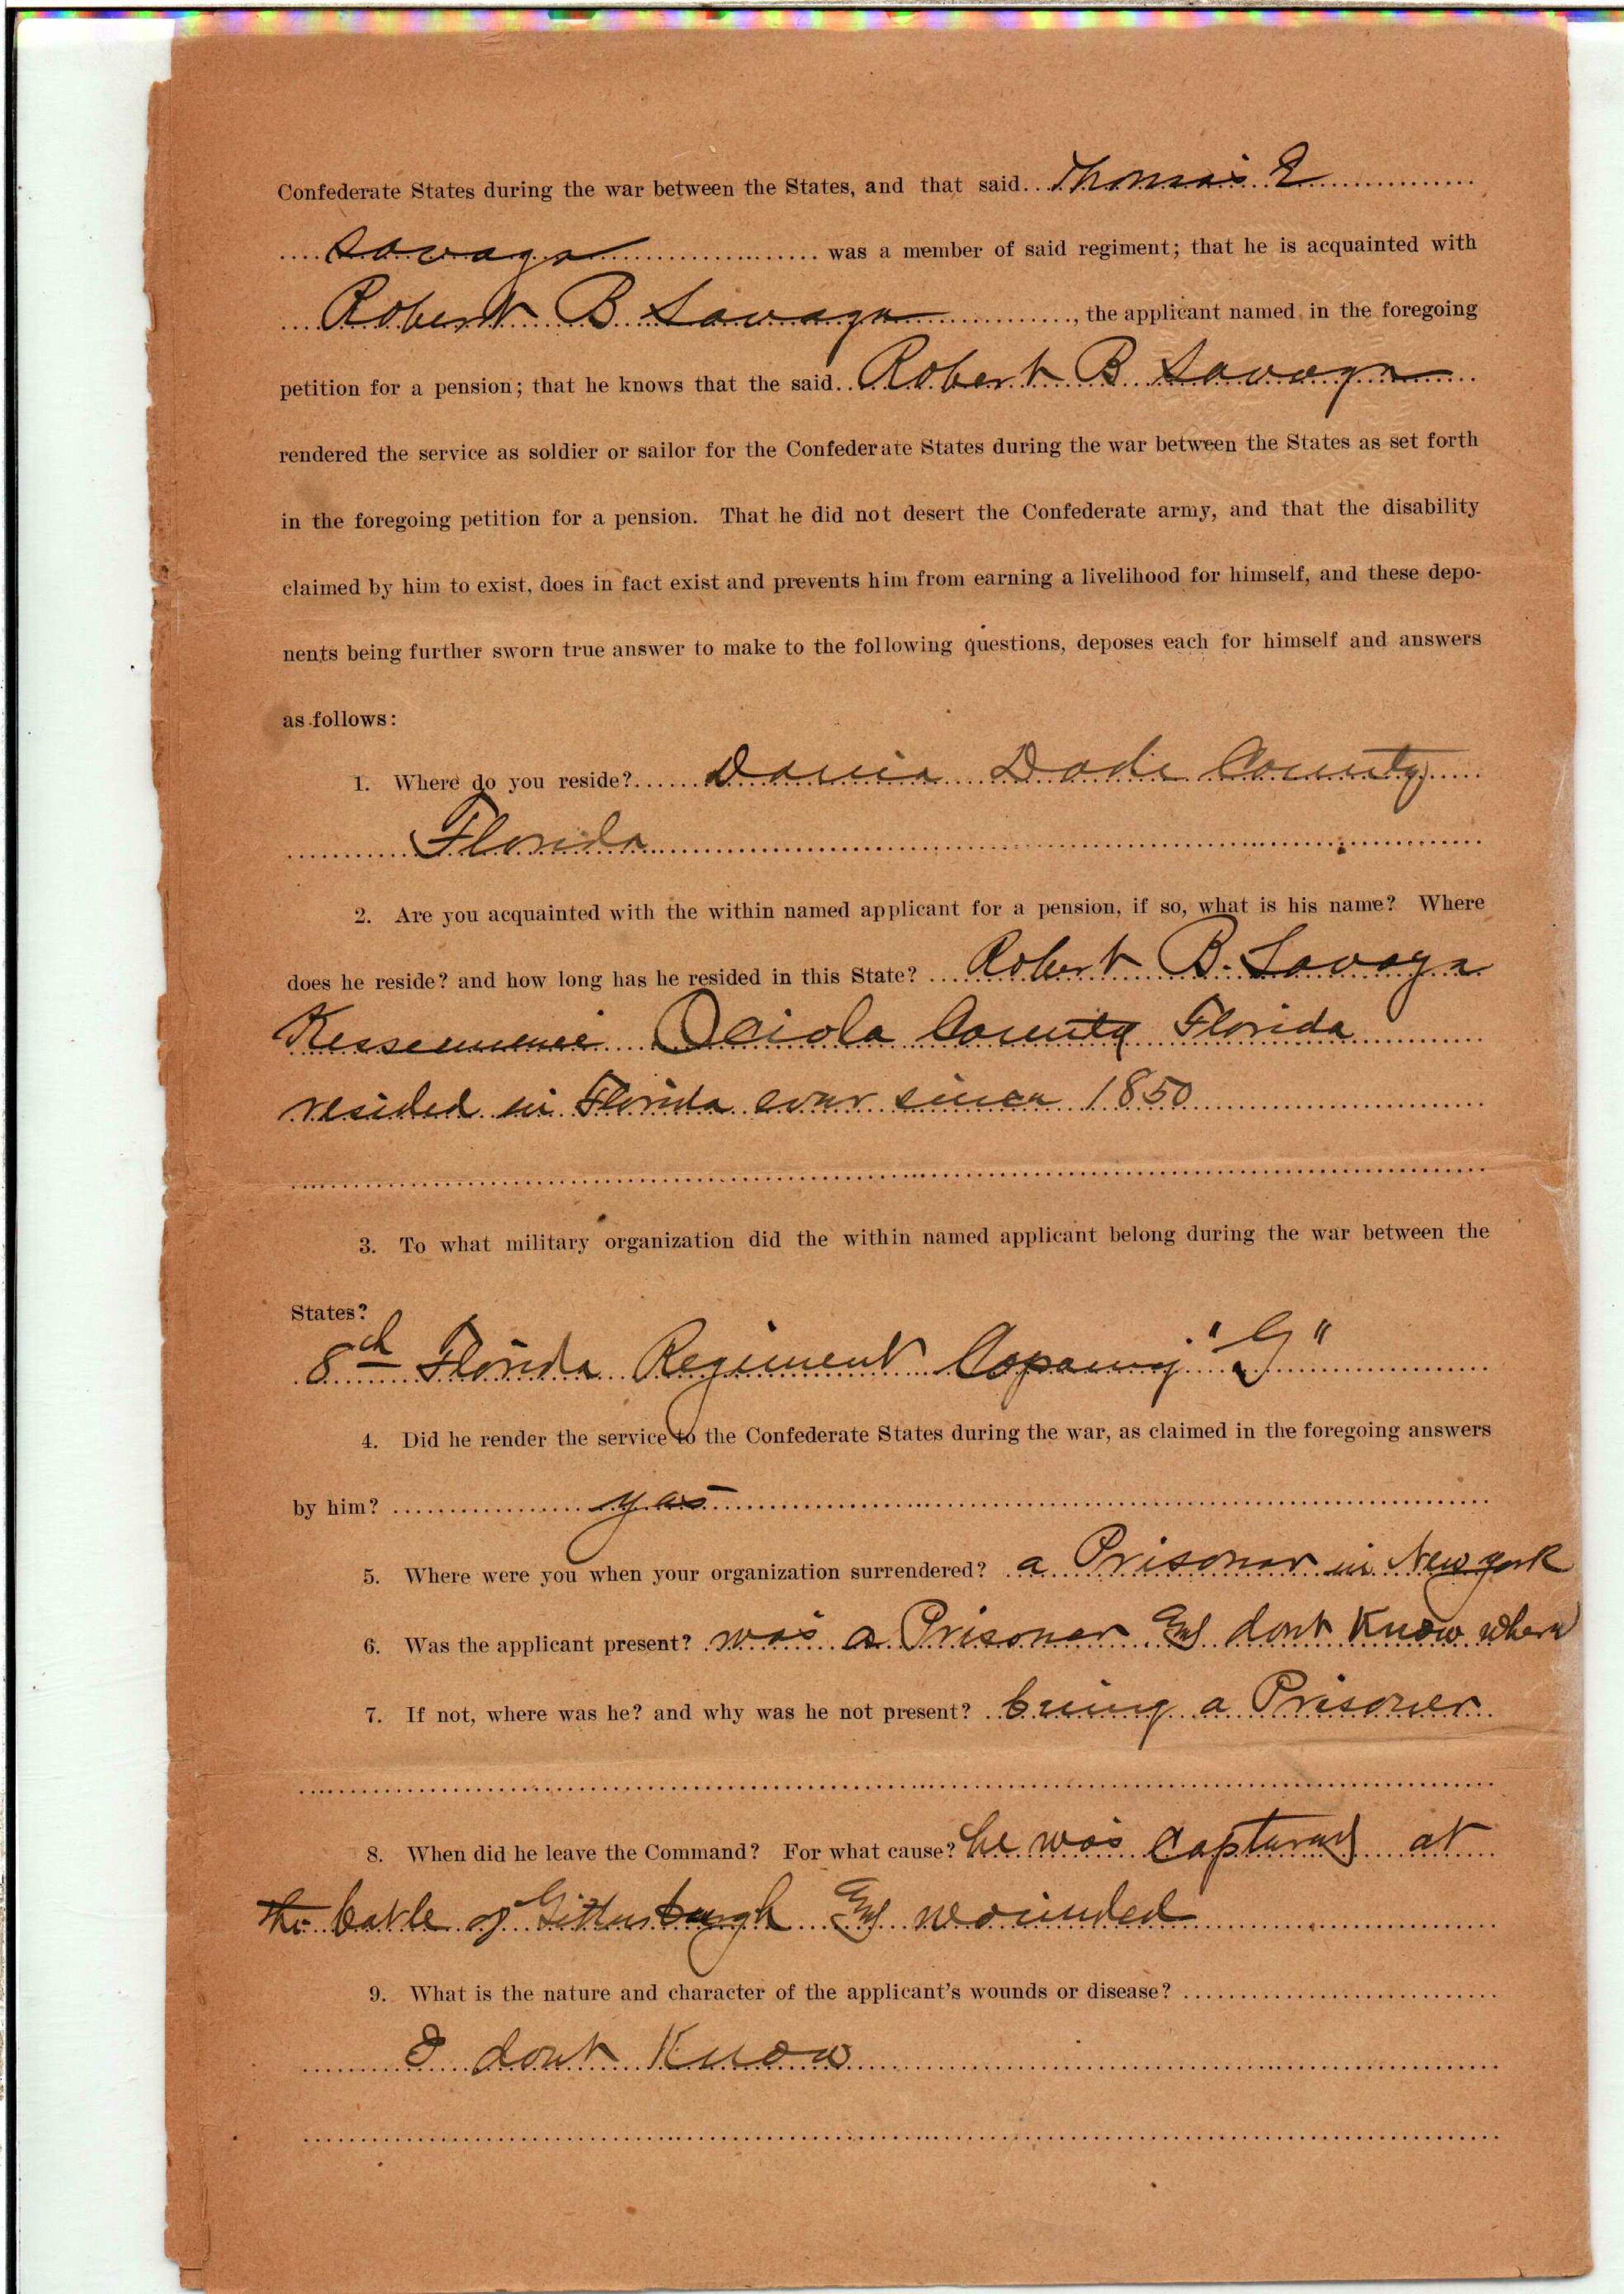 Confederate States during the war between the States, and that said Thomas E
Savage was a member of said regiment; that he is acquainted with
Robert B Savage, the applicant named in the foregoing
petition for a pension; that he knows that the said Robert B Savage
rendered the service as soldier or sailor for the Confederate States during the war between the States as set forth
in the foregoing petition for a pension. That he did not desert the Confederate army, and that the disability
claimed by him to exist, does in fact exist and prevents him from earning a livelihood for himself, and these depo-
nents being further sworn true answer to make to the following questions, deposes each for himself and answers
as follows:
1. Where do you reside? Dania Dade County
Florida
2. Are you acquainted with the within named applicant for a pension, if so, what is his name? Where
does he reside? and how long has he resided in this State? Robert B. Savage
Kissemmee Osiola County Florida
resided in Florida ever since 1850
3. To what military organization did the within named applicant belong during the war between the
States?
8th Florida Regiment Copany "G"
4. Did he render the service to the Confederate States during the war, as claimed in the foregoing answers
by him? yes
5. Where were you when your organization surrendered? a Prisoner in New york
6. Was the applicant present? was a Prisoner dont Know where
7. If not, where was he? and why was he not present? being a Prisoner
8. When did he leave the Command? For what cause? he was Captured at
the batle of Gittusburgh wounded
9. What is the nature and character of the applicant's wounds or disease?
I dont Know